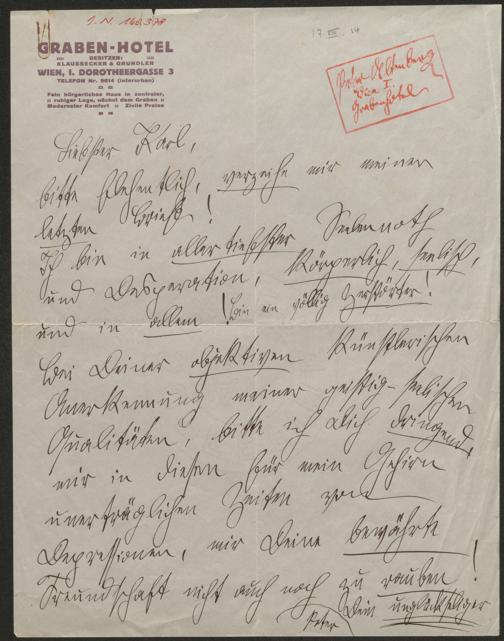 J. N. 160.378
17. XII. 14
GRABEN-HOTEL
BESITZER:
KLAUSSECKER & GRUNDLER
WIEN, I. DOROTHEERGASSE 3
TELEFON Nr. 9614 (interurban)
Fein bürgerliches Haus in zentraler,
ruhiger Lage, nächst dem Graben
Modernster Komfort Zivile Preise
Peter Altenberg
Wien I.
Grabenhotel
Liebster Karl,
bitte flehentlich, verzeihe mir meinen
letzten Brief!
Ich bin in allertiefster Seelennoth
und Desperation, körperlich, seelisch,
und in allem! Bin ein völlig Zerstörter!
Bei Deiner objektiven künstlerischen
Anerkennung meiner geistig-seelischen
Qualitäten, bitte ich Dich dringend,
mir in diesen für mein Gehirn
unerträglichen Zeiten von
Depressionen, mir Deine bewährte
Freundschaft nicht auch noch zu rauben!
Dein unglückseliger
Peter